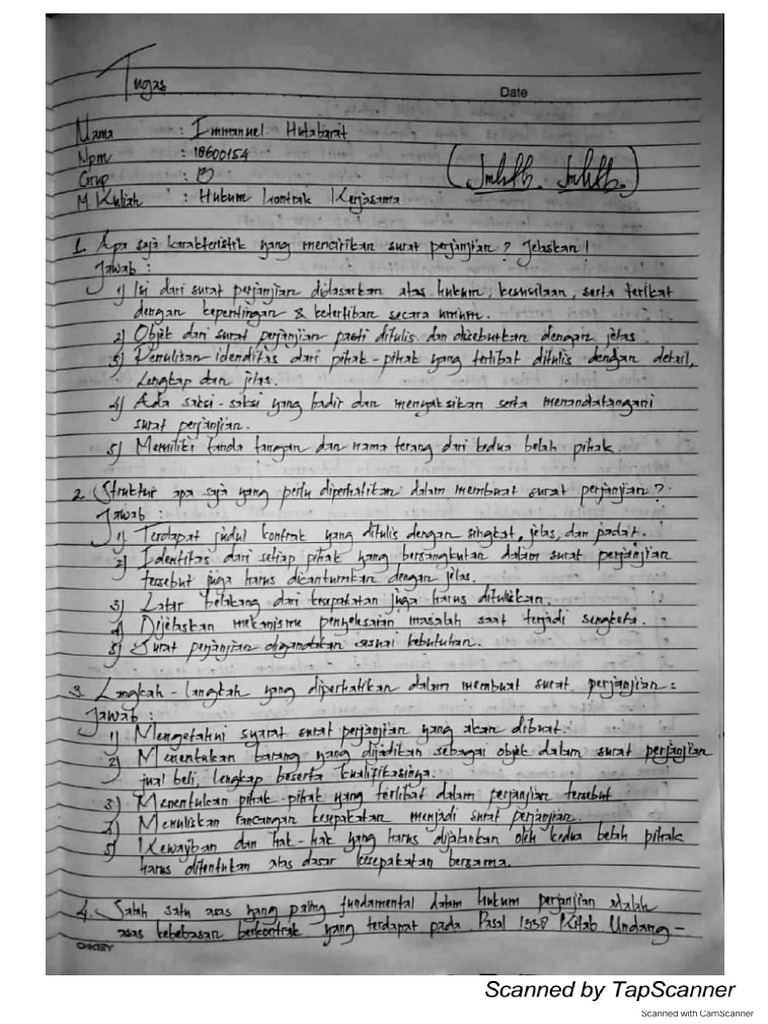 Tugas
Date
Nama : Immanuel Hutabarat
Npm : 18600154
Grup : B
M. Kuliah : Hukum kontrak Kerjasama
1. Apa saja karakteristik yang mencirikan surat perjanjian? Jelaskan!
Jawab :
1) Isi dari surat perjanjian didasarkan atas hukum, kesusilaan, serta terikat
dengan kepentingan & ketertiban secara umum.
2) Objek dari surat perjanjian pasti ditulis dan disebutkan dengan jelas
3) Penulisan idenditas dari pihak-pihak yang terlibat ditulis dengan detail,
Lengkap dan jelas.
4) Ada saksi-saksi yang hadir dan menyaksikan serta menandatangani
surat perjanjian.
5) Memiliki tanda tangan dan nama terang dari kedua belah pihak.
2. Struktur apa saja yang perlu diperhatikan dalam membuat surat perjanjian?
Jawab :
1) Terdapat judul kontrak yang ditulis dengan singkat, jelas, dan padat.
2) Identitas dari setiap pihak yang bersangkutan dalam surat perjanjian
tersebut juga harus dicantumkan dengan jelas.
3) Latar belakang dari kesepakatan juga harus dituliskan.
4) Dijelaskan mekanisme penyelesaian masalah saat terjadi sengketa.
5) Surat perjanjian digandakan sesuai kebutuhan.
3. Langkah-langkah yang diperhatikan dalam membuat surat perjanjian :
Jawab :
1) Mengetahui syarat surat perjanjian yang akan dibuat.
2) Menentukan barang yang dijadikan sebagai objek dalam surat perjanjian
jual beli, lengkap beserta kualifikasinya.
3) Menentukan pihak-pihak yang terlibat dalam perjanjian tersebut
4) Menuliskan rancangan kesepakatan menjadi surat perjanjian.
5) Kewajiban dan hak-hak yang harus dijalankan oleh kedua belah pihak
harus ditentukan atas dasar kesepakatan bersama.
4. Salah satu asas yang paling fundamental dalam hukum perjanjian adalah
asas kebebasan berkontrak yang terdapat pada Pasal 1338 Kitab Undang-
OKEY
Scanned by TapScanner
Scanned with CamScanner